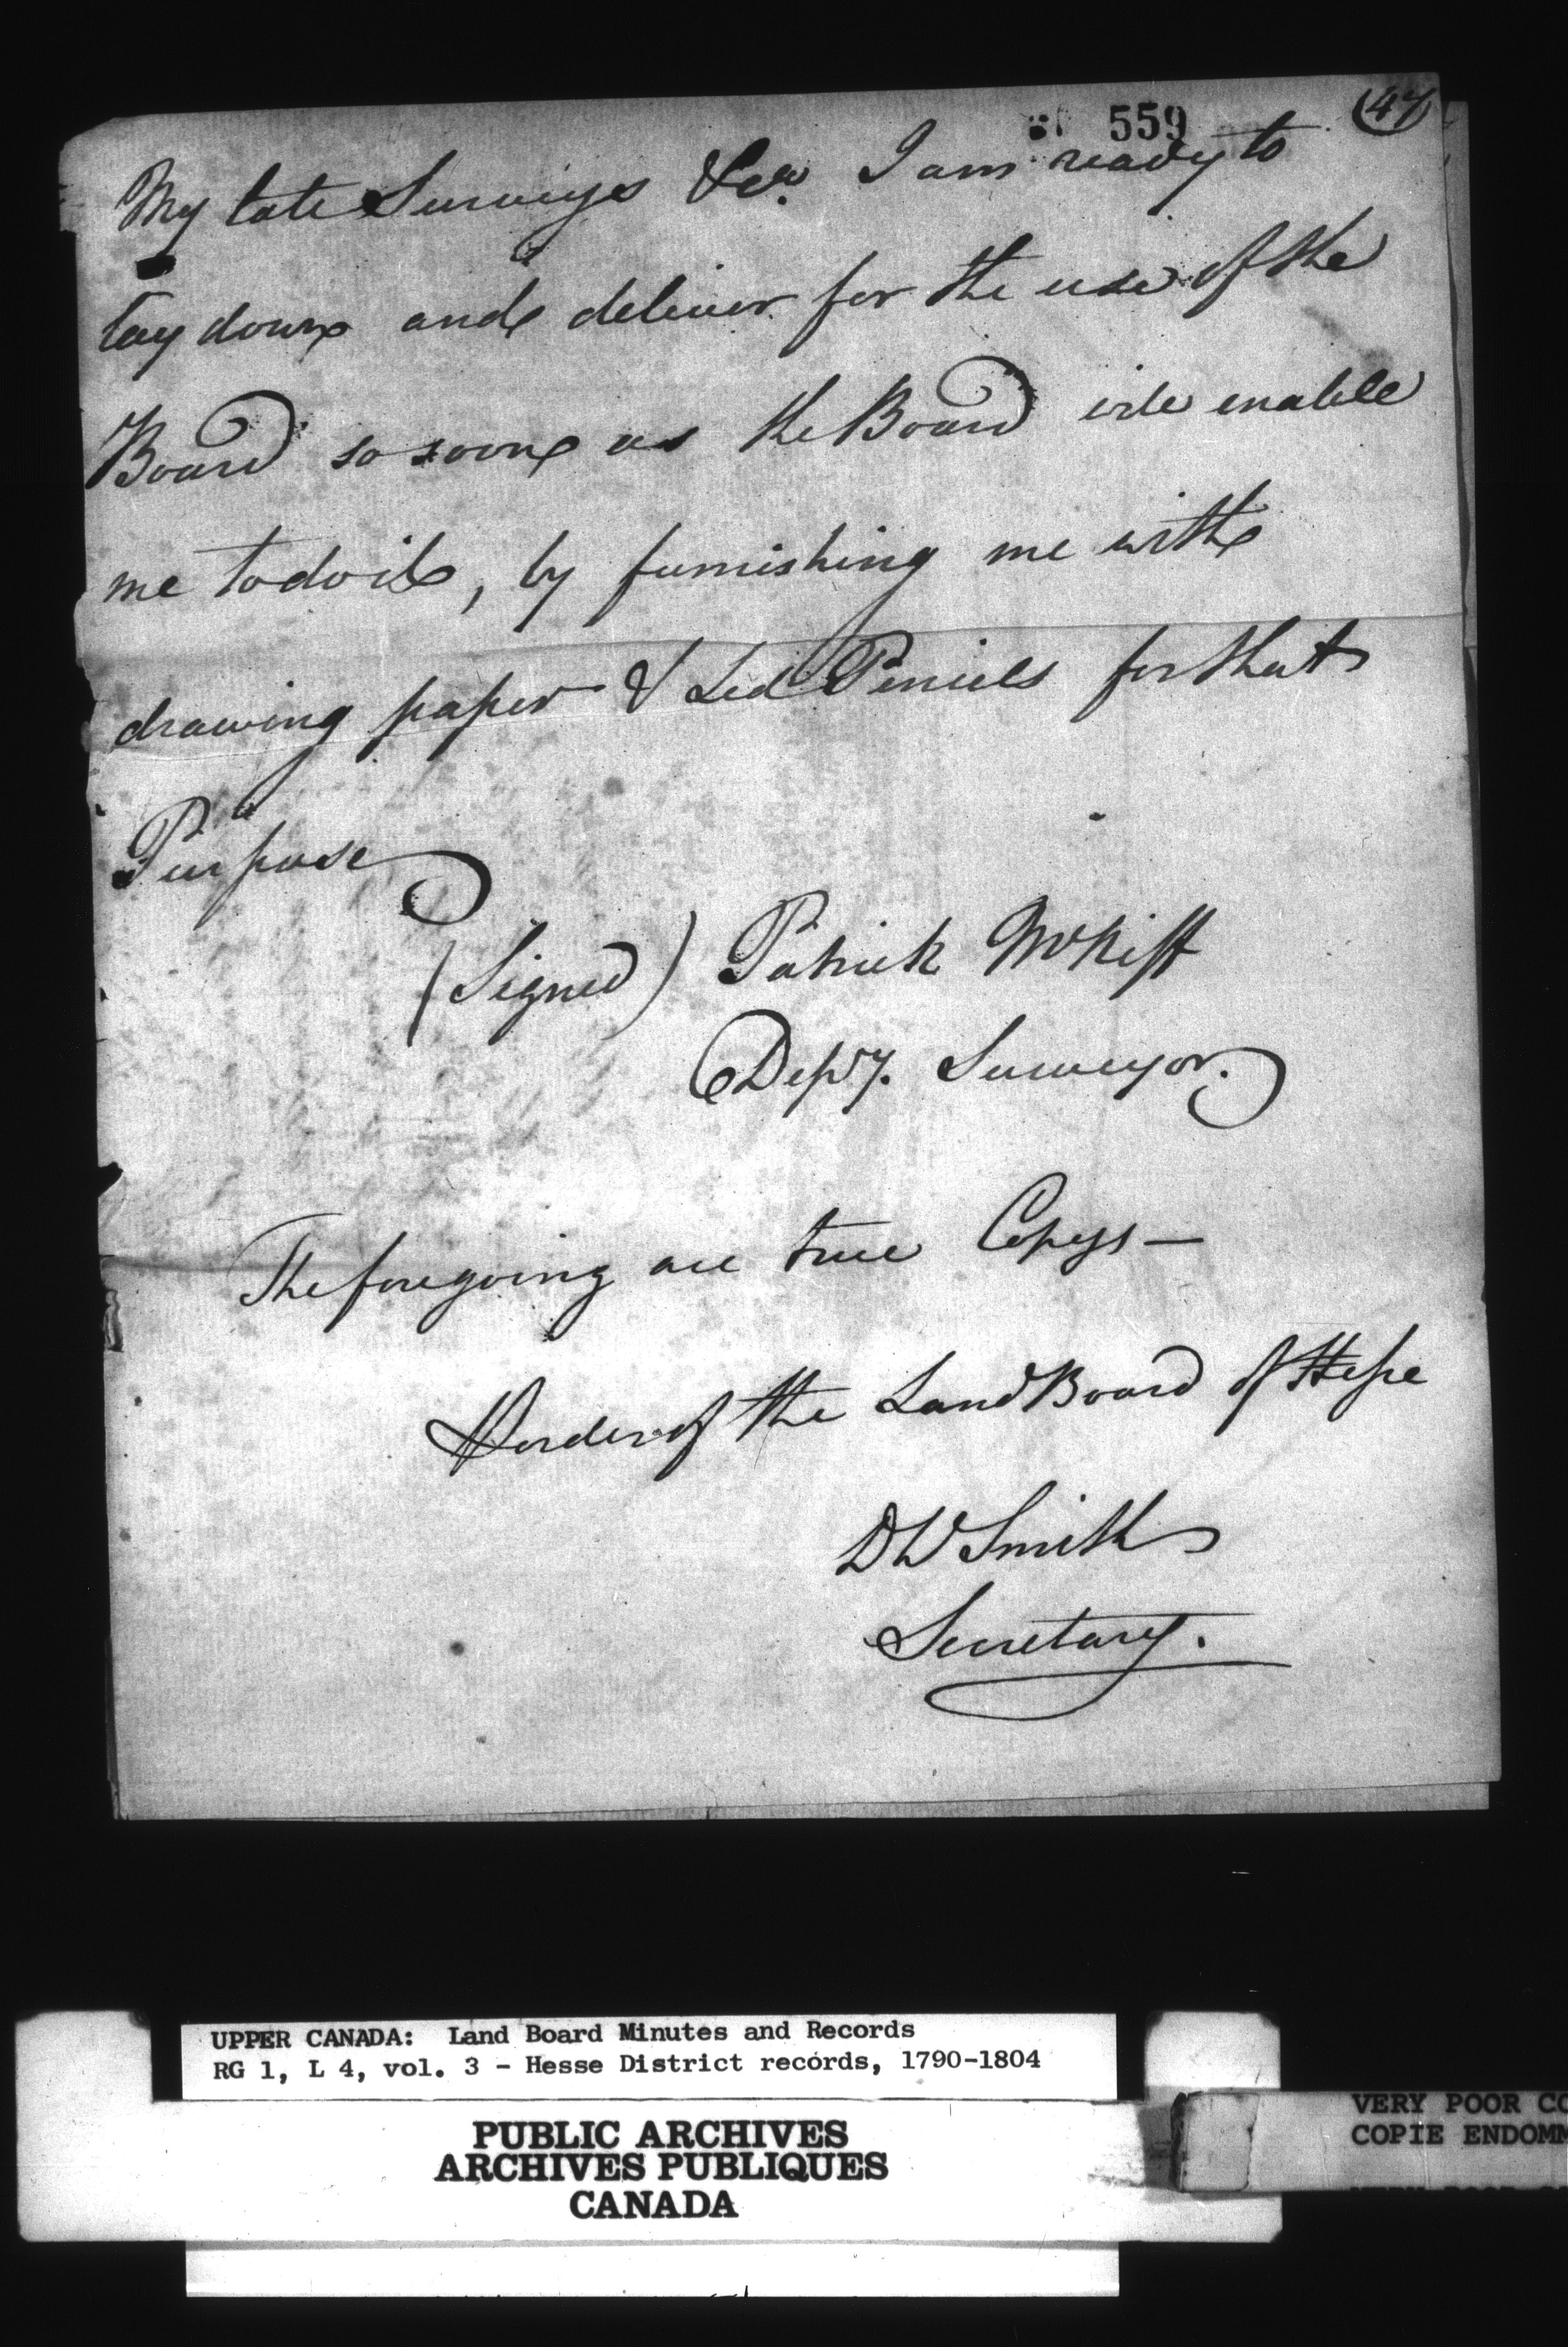 559
47
My late Surveys &ca. I am ready to
lay down and deliver for the use of the
Board so soon as the Board will enable
me to do it, by furnishing me with
drawing paper & Led Pencils for that
Purpose
(Signed) Patrick McNiff
Depy. Surveyor.
The foregoing are true Copys —
order of the Land Board of Hesse
D W Smith
Secretary.
UPPER CANADA: Land Board Minutes and Records
RG 1, L 4, vol. 3 - Hesse District records, 1790-1804
PUBLIC ARCHIVES
ARCHIVES PUBLIQUES
CANADA
VERY POOR CO
COPIE ENDOMM